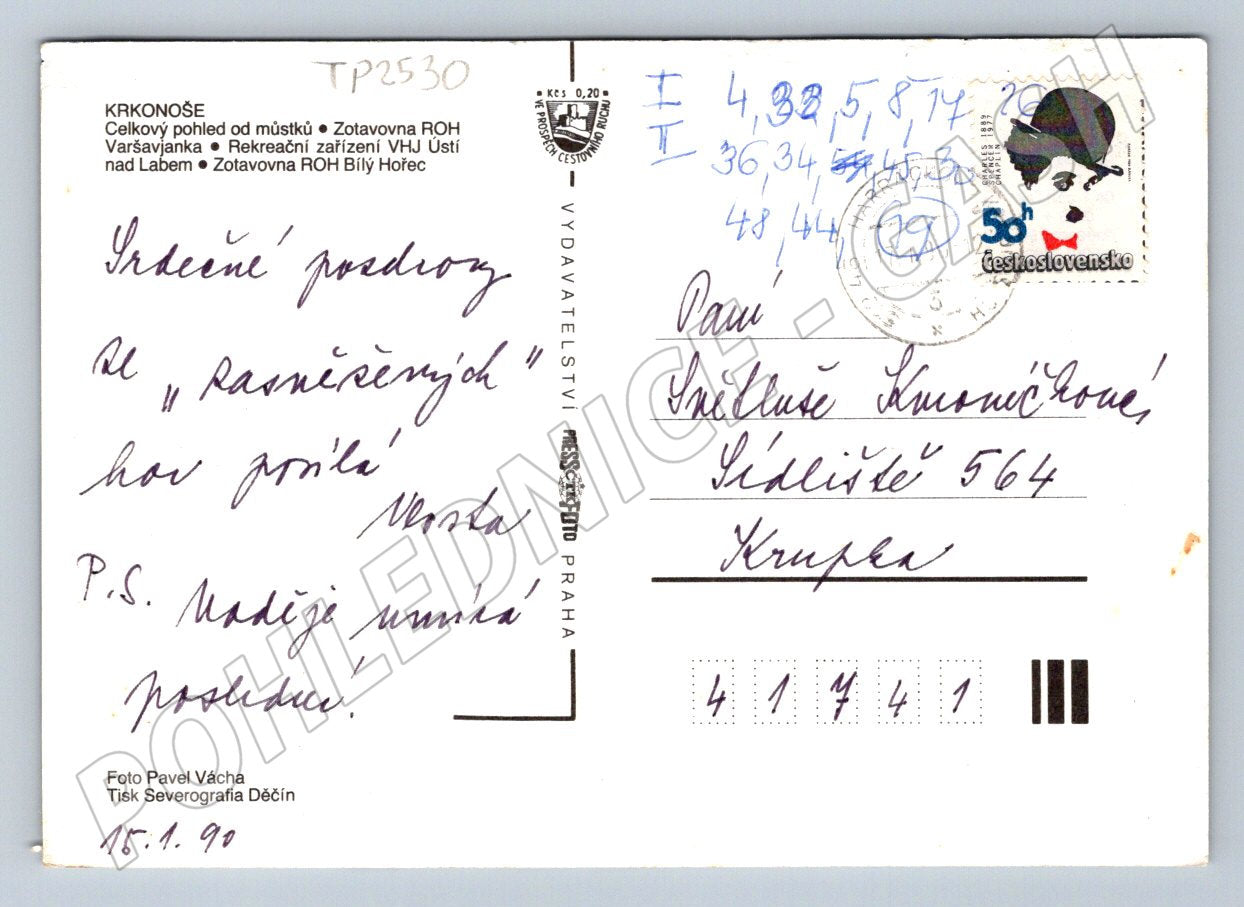 TP2530
KRKONOŠE
Celkový pohled od můstků • Zotavovna ROH
Varšavjanka • Rekreační zařízení VHJ Ústí
nad Labem • Zotavovna ROH Bílý Hořec
Srdečné pozdravy
ze „zasněžených"
hor posílá
Vlasta
P.S. Naděje umírá
poslední!
Foto Pavel Vácha
Tisk Severografia Děčín
15.1.90
Kčs 0,20
VE PROSPĚCH CESTOVNÍHO RUCHU
VYDAVATELSTVÍ
PRESSFOTO
PRAHA
I 4, 32, 5, 8, 17 26
II 36, 34, 45, 3
48, 44, 29
CHARLES 1889
SPENCER 1977
CHAPLIN
50h
Československo
Paní
Světluše Kmoníčková
Sídliště 564
Krupka
41741
POHLEDNICE - CASH